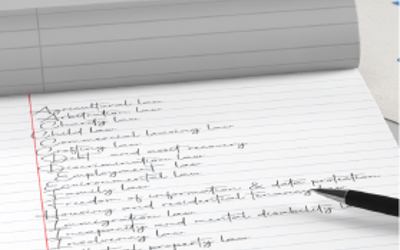 Agricultural law
Arbitration law
Charity law
Child law
Commercial leasing law
Crofting law
Debt and asset recovery
Discrimination law
Employment law
Environmental law
Family law
Freedom of information & data protection
Housing and residential tenancy
Immigration law
Incapacity and mental disability law
Insolvency law
property law